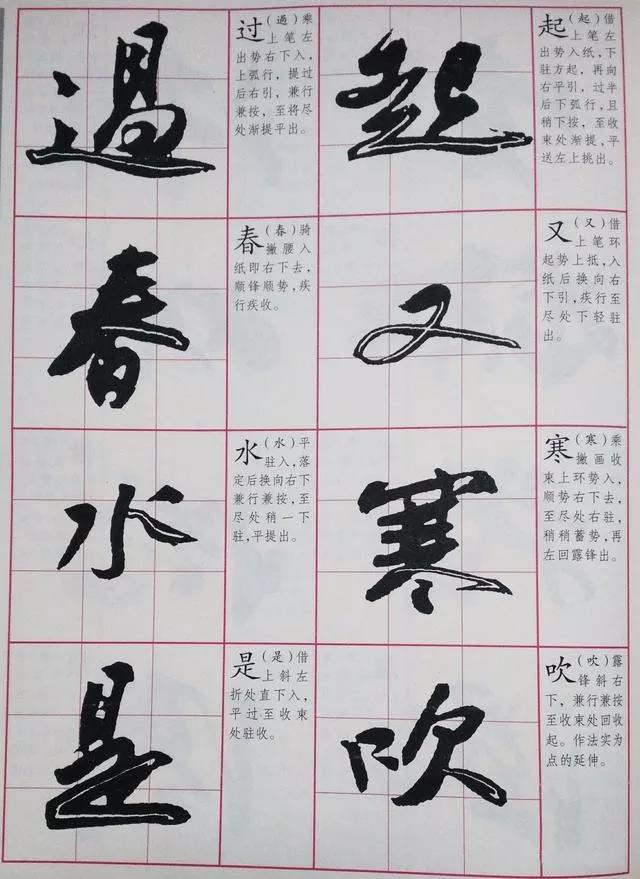 過
过(過)乘
上笔左
出势右下入,
上弧行，提过
后右引，兼行
兼按，至将尽
处渐提平出。
起
起(起)借
上笔左
出势入纸，下
驻方起，再向
右平引，过半
后下弧行，且
稍下按，至收
束处渐提，平
送左上挑出。
春
春(春)骑
撇腰入
纸即右下去，
顺锋顺势，疾
行疾收。
又
又(又)借
上笔环
起势上抵，入
纸后换向右
下引，疾行至
尽处下轻驻
出。
水
水(水)平
驻入，落
定后换向右下
兼行兼按，至
尽处稍一下
驻，平提出。
寒
寒(寒)乘
撇画收
束上环势入，
顺势右下去，
至尽处右驻，
稍稍蓄势，再
左回露锋出。
是
是(是)借
上斜左
折处直下入，
平过至收束
处驻收。
吹
吹(吹)露
锋斜右
下，兼行兼按
至收束处回收
起。作法实为
点的延伸。